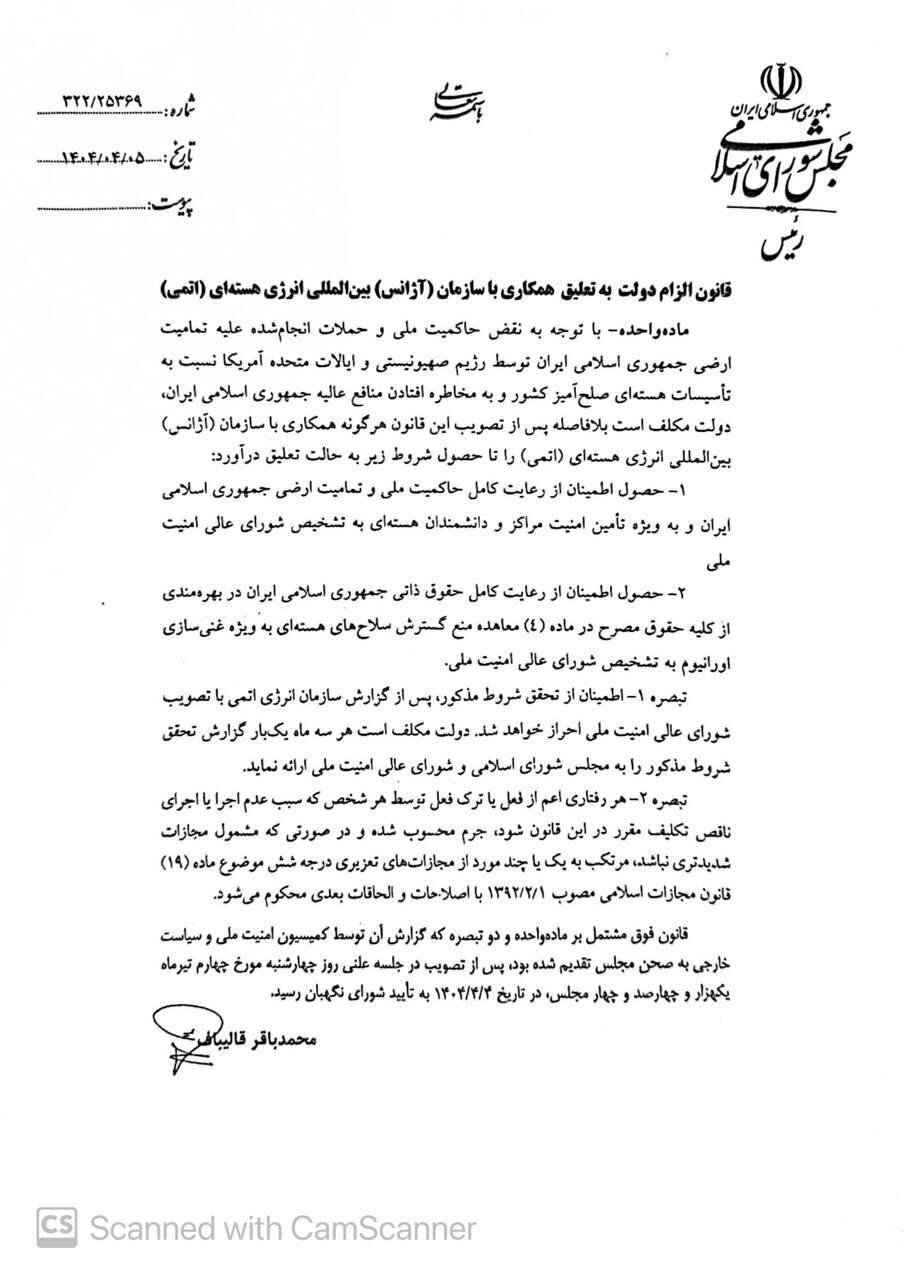 جمهوری اسلامی ایران
مجلس شورای اسلامی
رئیس
باسمه تعالی
شماره: ۳۲۲/۲۵۳۶۹
تاریخ: ۱۴۰۴/۰۴/۰۵
پیوست:
قانون الزام دولت به تعلیق همکاری با سازمان (آژانس) بین‌المللی انرژی هسته‌ای (اتمی)
ماده‌واحده- با توجه به نقض حاکمیت ملی و حملات انجام‌شده علیه تمامیت
ارضی جمهوری اسلامی ایران توسط رژیم صهیونیستی و ایالات متحده آمریکا نسبت به
تأسیسات هسته‌ای صلح‌آمیز کشور و به مخاطره افتادن منافع عالیه جمهوری اسلامی ایران،
دولت مکلف است بلافاصله پس از تصویب این قانون هرگونه همکاری با سازمان (آژانس)
بین‌المللی انرژی هسته‌ای (اتمی) را تا حصول شروط زیر به حالت تعلیق درآورد:
۱- حصول اطمینان از رعایت کامل حاکمیت ملی و تمامیت ارضی جمهوری اسلامی
ایران و به ویژه تأمین امنیت مراکز و دانشمندان هسته‌ای به تشخیص شورای عالی امنیت
ملی
۲- حصول اطمینان از رعایت کامل حقوق ذاتی جمهوری اسلامی ایران در بهره‌مندی
از کلیه حقوق مصرح در ماده (٤) معاهده منع گسترش سلاح‌های هسته‌ای به ویژه غنی‌سازی
اورانیوم به تشخیص شورای عالی امنیت ملی.
تبصره ۱- اطمینان از تحقق شروط مذکور، پس از گزارش سازمان انرژی اتمی با تصویب
شورای عالی امنیت ملی احراز خواهد شد. دولت مکلف است هر سه ماه یک‌بار گزارش تحقق
شروط مذکور را به مجلس شورای اسلامی و شورای عالی امنیت ملی ارائه نماید.
تبصره ۲- هر رفتاری اعم از فعل یا ترک فعل توسط هر شخص که سبب عدم اجرا یا اجرای
ناقص تکلیف مقرر در این قانون شود، جرم محسوب شده و در صورتی که مشمول مجازات
شدیدتری نباشد، مرتکب به یک یا چند مورد از مجازات‌های تعزیری درجه شش موضوع ماده (۱۹)
قانون مجازات اسلامی مصوب ۱۳۹۲/۲/۱ با اصلاحات و الحاقات بعدی محکوم می‌شود.
قانون فوق مشتمل بر ماده‌واحده و دو تبصره که گزارش آن توسط کمیسیون امنیت ملی و سیاست
خارجی به صحن مجلس تقدیم شده بود، پس از تصویب در جلسه علنی روز چهارشنبه مورخ چهارم تیرماه
یکهزار و چهارصد و چهار مجلس، در تاریخ ۱۴۰۴/۴/۴ به تأیید شورای نگهبان رسید.
محمدباقر قالیباف
CS Scanned with CamScanner